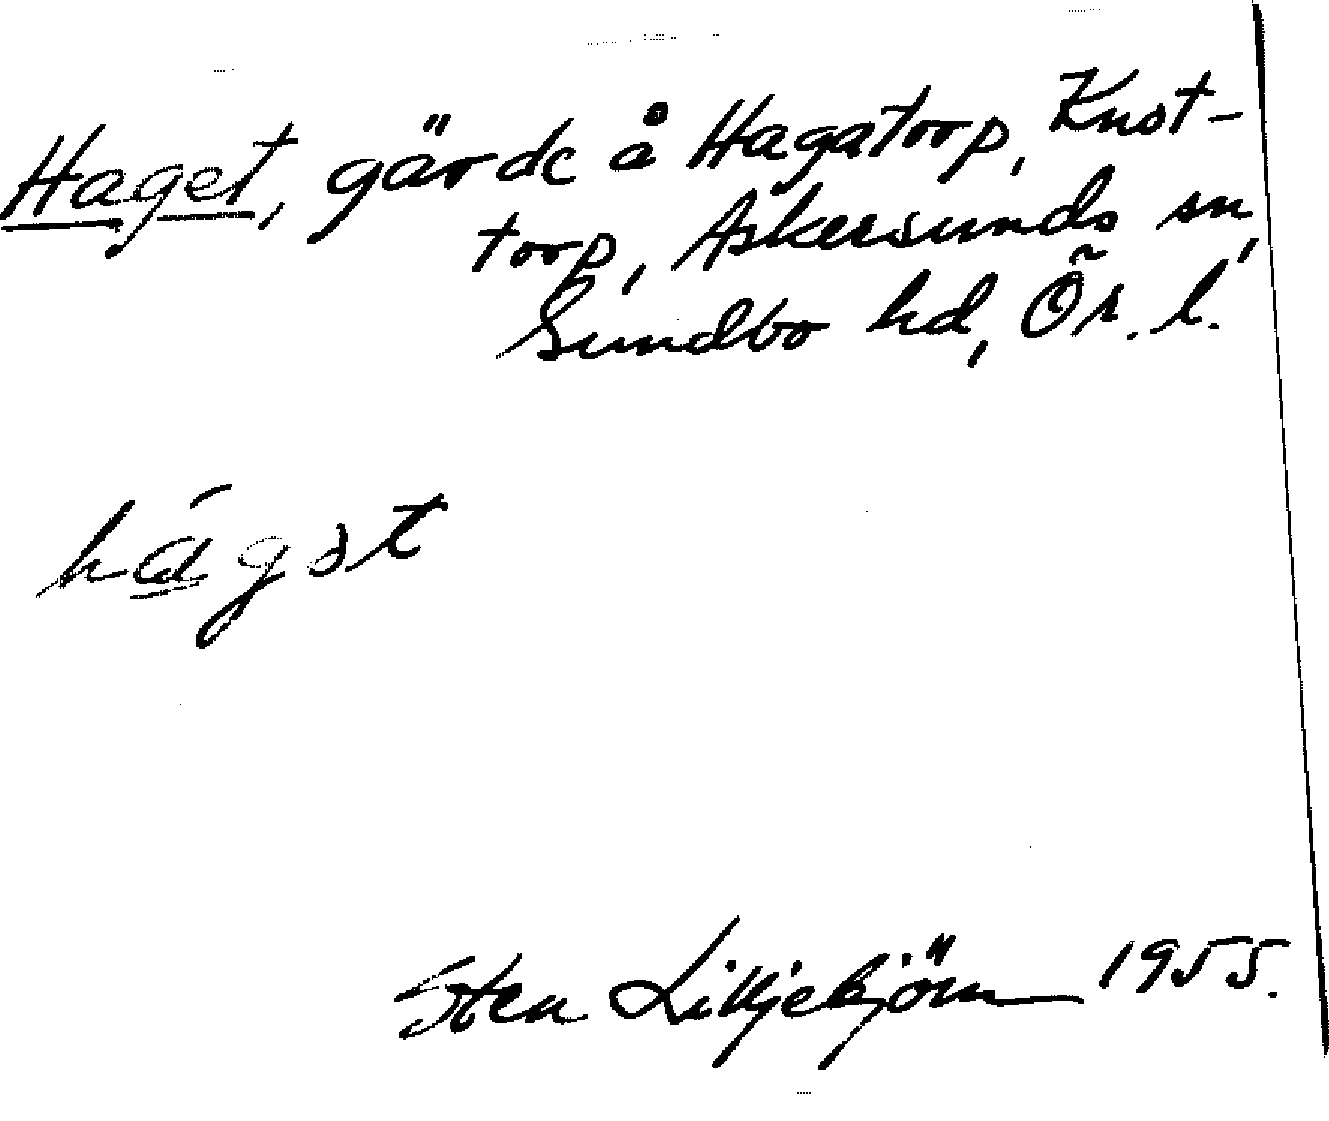 Haget, gärde å Hagatorp, Knst-
torp, Askersunds sn,
Sundbo hd, Ör. l.
hágət
Sten Liljebjörn 1955.